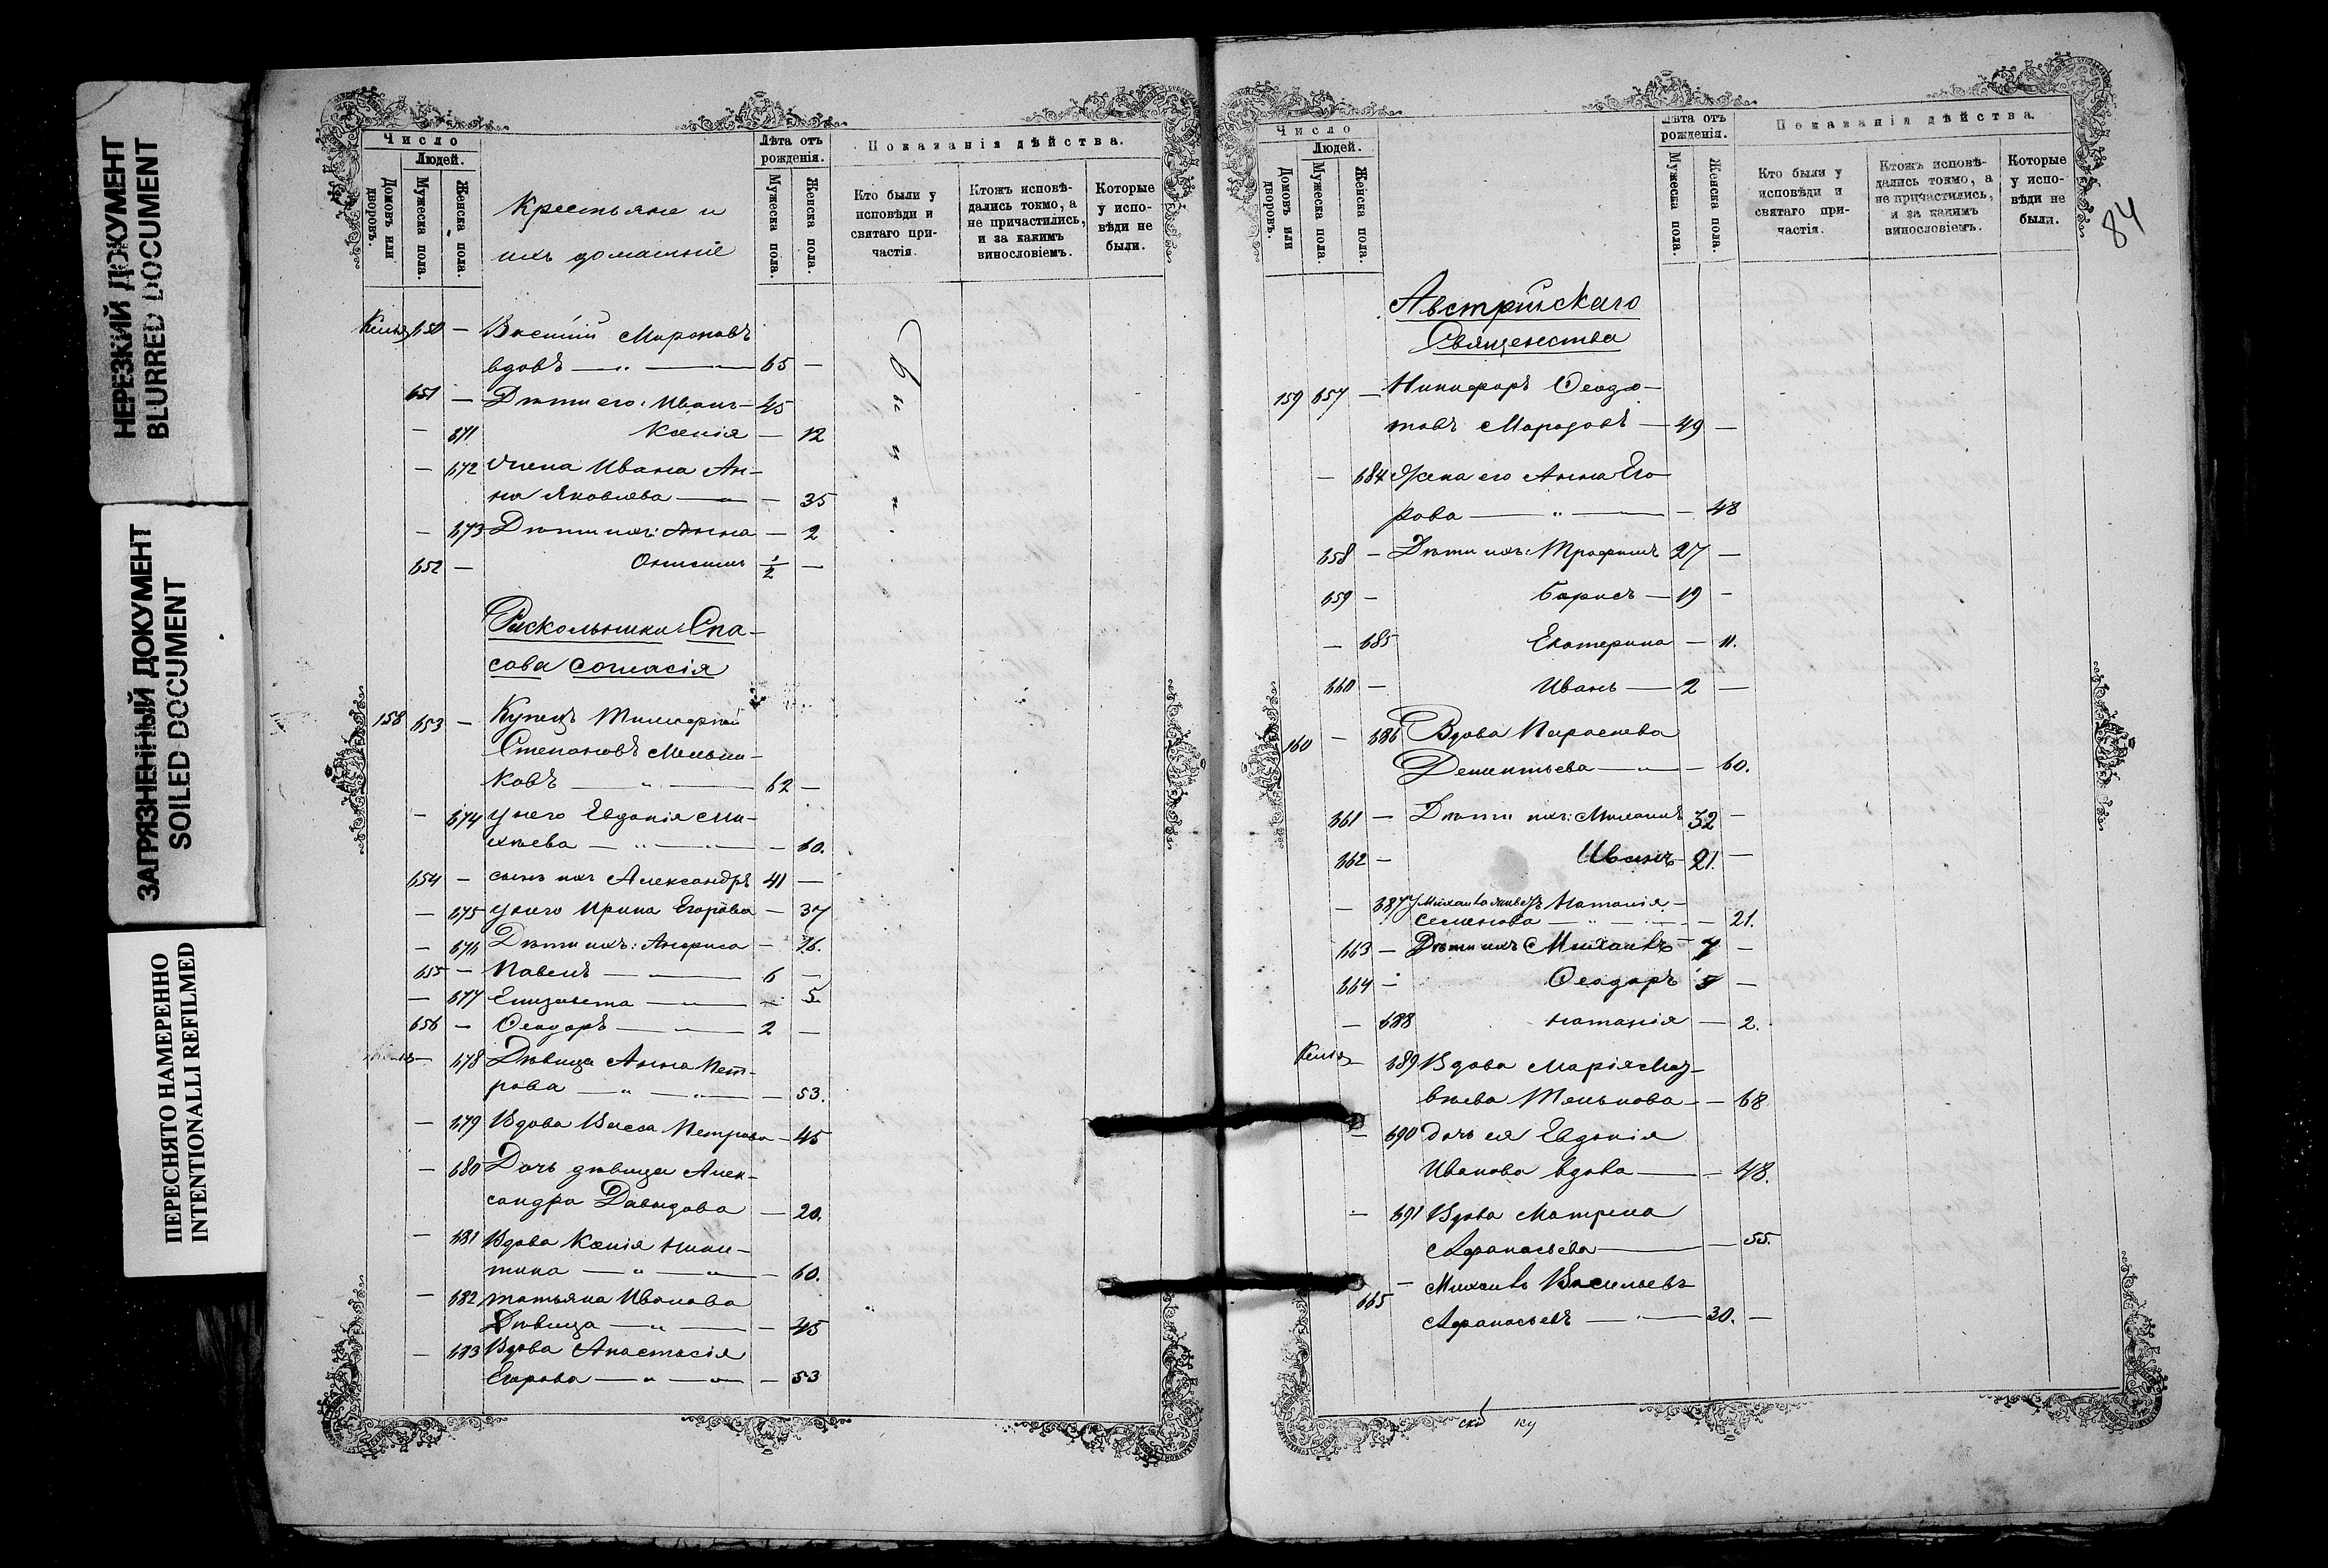 НЕРЕЗКИЙ ДОКУМЕНТ
BLURRED DOCUMENT
ЗАГРЯЗНЕННЫЙ ДОКУМЕНТ
SOILED DOCUMENT
ПЕРЕСНЯТО НАМЕРЕННО
INTENTIONALLI REFILMED
Число
Людей.
Домовъ или дворовъ.
Мужеска пола.
Женска пола.
Крестьяне и
ихъ домашніе
Лѣта отъ рожденія.
Мужеска пола.
Женска пола.
Показанія дѣйства.
Кто были у исповѣди и святаго причастія.
Ктожъ исповѣдались токмо, а не причастились, и за какимъ винословіемъ.
Которые у исповѣди не были.
Келья 650 — Василій Мироновъ
вдовъ — 65 —
651 — Дѣти его: Иванъ — 45
— 671 Ксенія — 12
— 672 Жена Ивана Ан-
на Яковлева — — 35
— 673 Дѣти ихъ: Анна — 2
652 — Онисимъ 1/2 —
Были
Раскольники Спа-
сова согласія
158 653 — Купецъ Тимофей
Степановъ Мельни-
ковъ — 62 —
— 674 у него Евдокія Ми-
хѣева — — 60.
654 — сынъ ихъ Александръ 41 —
— 675 у него Ирина Егорова — 37
— 676 Дѣти ихъ: Анфиса — 16.
655 — Павелъ — 6 —
— 677 Елизавета — — 5.
656 — Ѳеодоръ — 2 —
— 678 Дѣвица Анна Пет-
рова — — 53.
— 679 Вдова Васса Петрова — 45
— 680 Дочь дѣвица Алек-
сандра Давыдова — 20.
— 681 Вдова Ксенія Ники-
тина — — 60.
— 682 Татьяна Иванова
Дѣвица — — 45
— 683 Вдова Анастасія
Егорова — — 53
Число
Людей.
Домовъ или дворовъ.
Мужеска пола.
Женска пола.
Лѣта отъ рожденія.
Мужеска пола.
Женска пола.
Показанія дѣйства.
Кто были у исповѣди и святаго причастія.
Ктожъ исповѣдались токмо, а не причастились, и за какимъ винословіемъ.
Которые у исповѣди не были.
84
Австрійскаго
Священства
159 657 — Никифоръ Ѳеодо-
товъ Морозовъ — 49 —
— 684 Жена его Анна Его
рова — — 48
658 — Дѣти ихъ: Трофимъ 27 —
659 — Борисъ — 19 —
— 685 Екатерина — 11.
660 — Иванъ — 2 —
160 — 686 Вдова Параскева
Дементьева — — 60.
661 — Дѣти ихъ: Михаилъ 32 —
662 — Иванъ 21. —
— 687 у Михаила Наталія
Семенова — — 21.
663 — Дѣти ихъ Михаилъ — 7 —
664 — Ѳеодоръ 5 —
— 688 Наталія — 2.
Келія — 689 Вдова Марія Мат-
вѣева Тенькова — — 68
— 690 дочь ея Евдокія
Иванова вдова — — 48.
— 691 Вдова Матрена
Афанасьева — — 55.
665 — Михаилъ Васильевъ
Афанасьевъ — 30. —